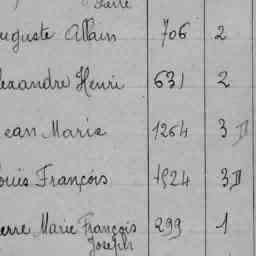 Pierre
uguste Allain 706 2
lexandre Henri 631 2
ean Marie 1264 3 II
ouis François 1524 3 II
erre Marie François 299 1
Joseph